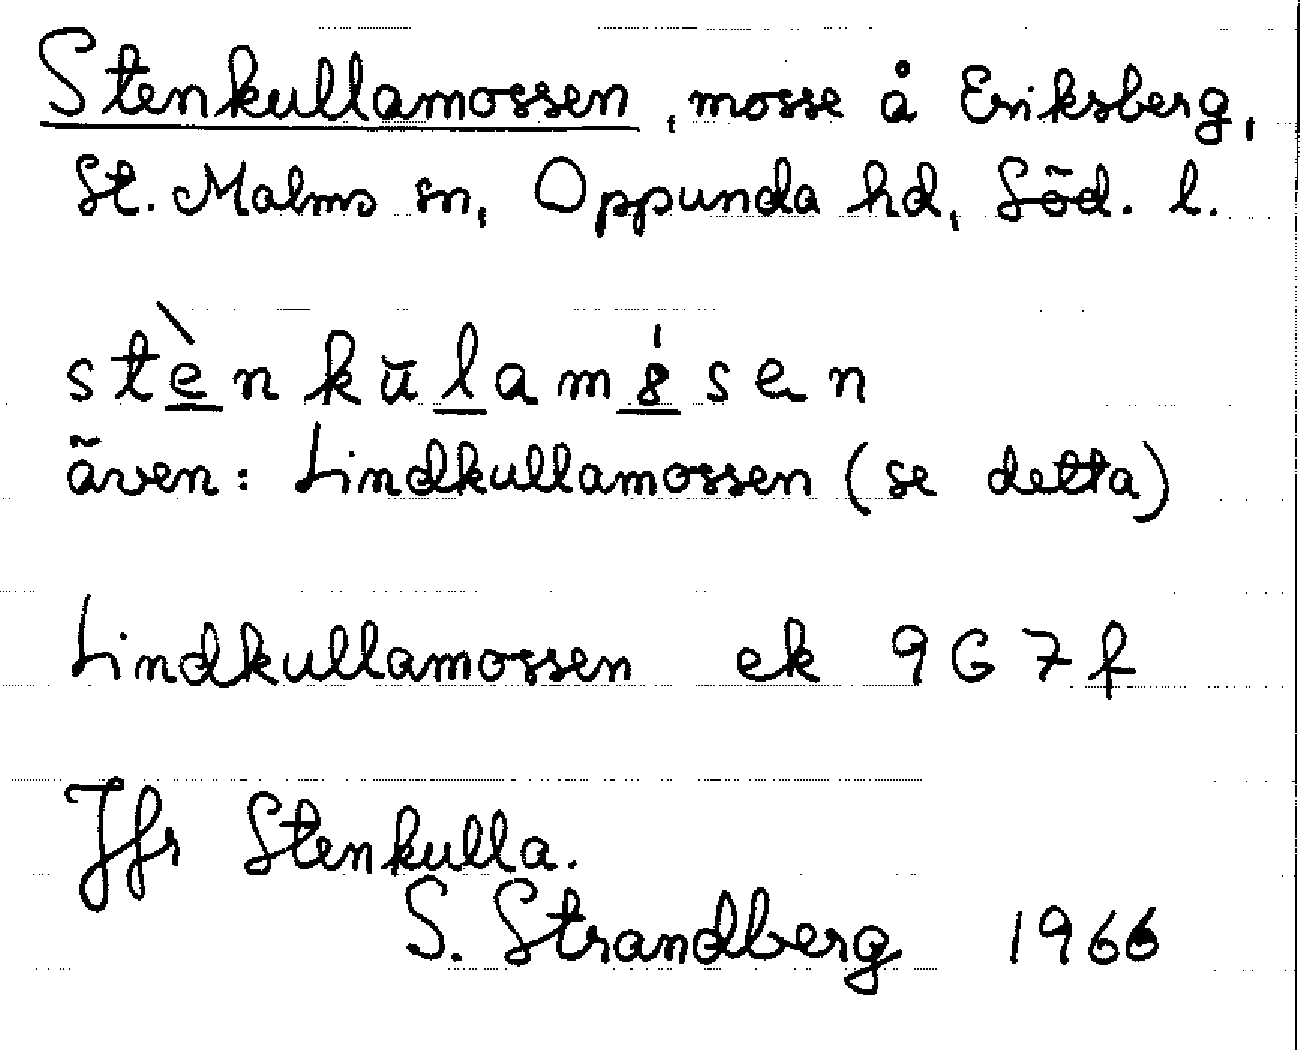 Stenkullamossen, mosse å Eriksberg,
St. Malms sn, Oppunda hd, Söd. l.
stè̲nkŭl̲am8̲́sen
även: Lindkullamossen (se detta)
Lindkullamossen ek 9G7f
Jfr Stenkulla.
S. Strandberg 1966